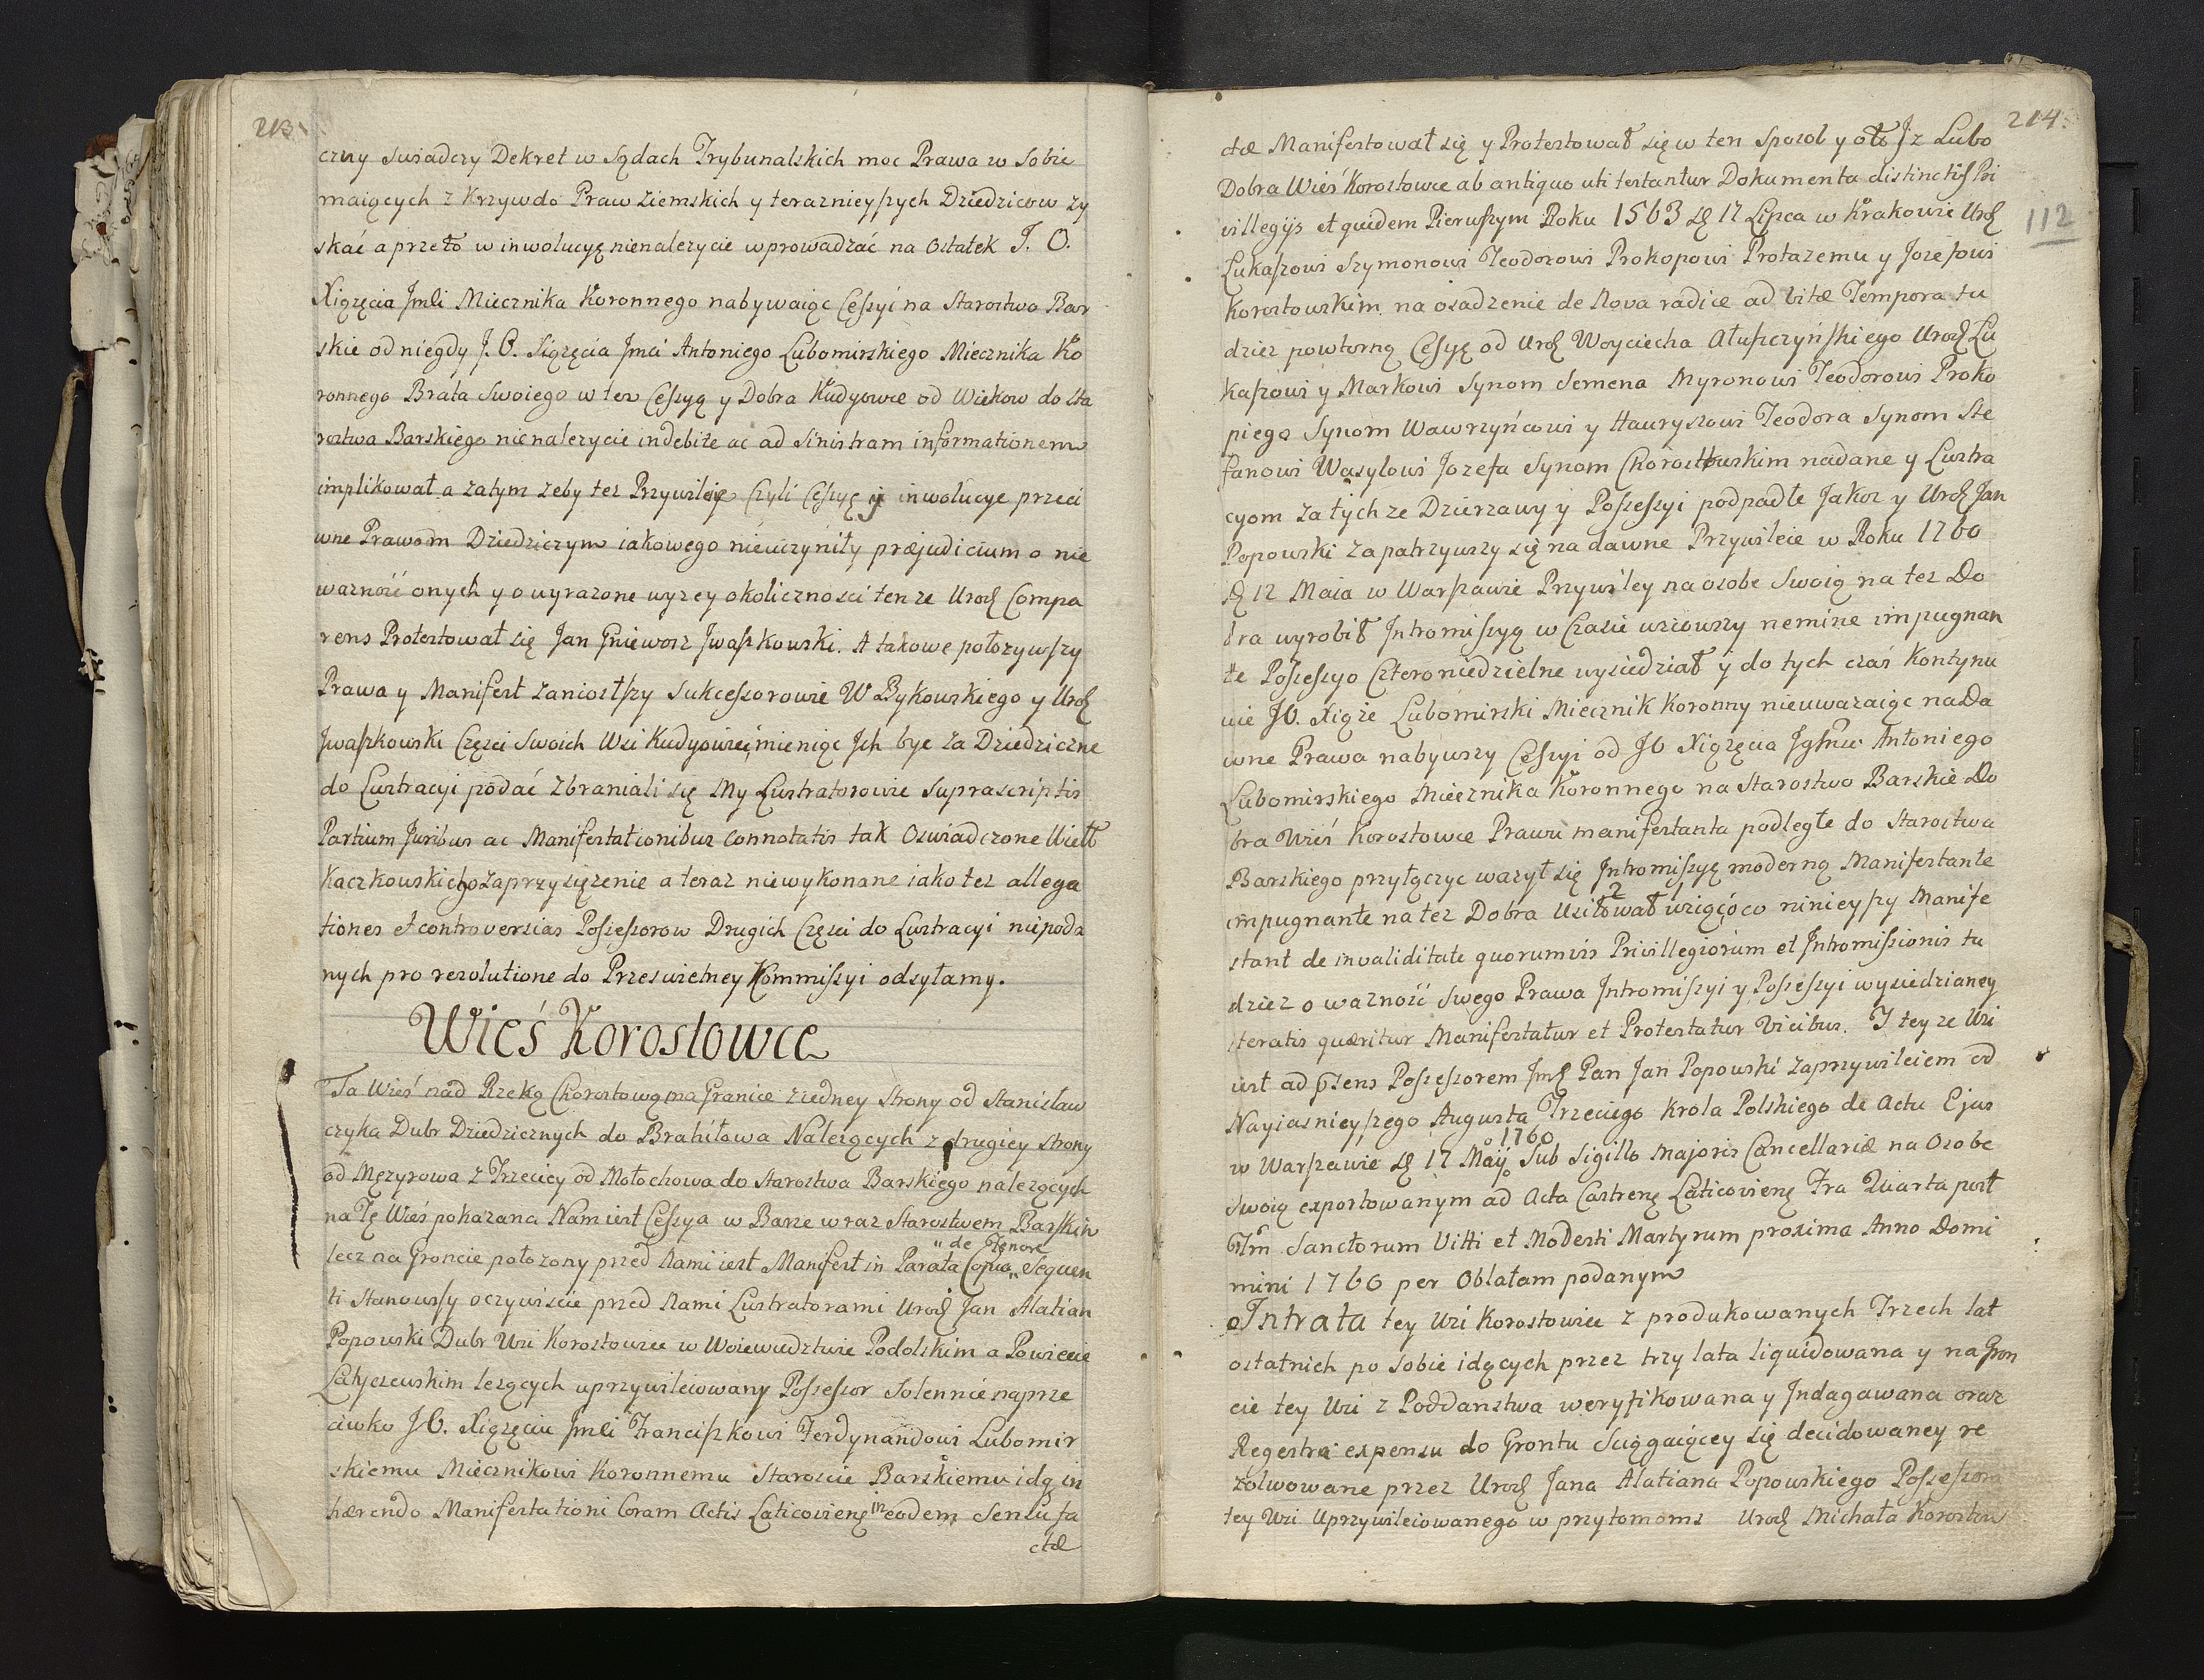 213
czny swiadczy Dekret w Sądach Trybunalskich moc Prawa w Sobie
maiących z Krzywdo Praw Ziemskich y teraznieyszych Dziedzicow zy
skać a przeto w inwolucyę nienalezycie wprowadzać na Ostatek J. O.
Xiązęcia Jmći Miecznika Koronnego nabywaiąc Cessyi na Starostwo Bar
skie od niegdy J. O. Xiązęcia Jmći Antoniego Lubomirskiego Miecznika Ko
ronnego Brata Swoiego w tez Cessyą y Dobra Kudyowce od Wiekow do Sta
rostwa Barskiego nienalezycie indebite ac ad Sinistram informationem
implikował a zatym zeby tez Przywileje Czyli Cessyę y inwolucye przeci
wne Prawom Dziedziczym iakowego nieuczyniły præjudicium o nie
warność onych y o wyrazone wyzey okoliczności tenze Urodz Compa
rens Protestował się Jan Gniewosz Jwaszkowski. A takowe połozywszy
Prawa y Manifest zaniosłszy Sukcessorowie W Bykowskiego y Urodz
Jwaszkowski Części Swoich Wsi Kudyowiec mieniąc Jch byc za Dziedziczne
do Lustracyi podać zbraniali się My Lustratorowie Suprascriptis
Partium Juribus ac Manifestationibus connotatis tak Oswiadczone Wielb
Kaczkowskich zaprzysięzenie a teraz niewykonane iako tez allega
tiones et controversias Possessorow Drugich Części do Lustracyi niepoda
nych pro resolutione do Przeswietney Kommissyi odsyłamy.
Wieś Korostowce
Ta Wieś nad Rzeką Chorostową ma Granice z iedney Strony od Stanisław
czyka Dubr Dziedzicznych do Brahiłowa Nalezących z drugiey Strony
od Męzyrowa z Trzeciey od Mołochowa do Starostwa Barskiego nalezących
na Tę Wieś pokazana Nam iest Cessya w Barze wraz Starostwem Barskim
lecz na Groncie połozony przed Nami iest Manifest in Parata Copia " de Tenore " Sequen
ti Stanowszy oczywiscie przed Nami Lustratorami Urodz Jan Alatian
Popowski Dubr Wsi Korostowiec w Woiewudztwie Podolskim a Powiecie
Latyczewskim lezących uprzywileiowany Possessor Solennie naprze
ciwko J O. Xiązęciu Jmći Franciszkowi Ferdynandowi Lubomir
skiemu Miecznikowi Koronnemu Staroscie Barskiemu idą in
hærendo Manifestationi Coram Actis Laticovien in eodem Sensu fa
ctæ
214
112
ctæ Manifestował się y Protestował się w ten Sposob y oto Jz Lubo
Dobra Wieś Korostowce ab antiquo uti testantur Dokumenta distinctis Pri
villegijs et quidem Pierwszym Roku 1563 d 12 Lipca w Krakowie Urodz
Lukaszowi Szymonowi Teodorowi Prokopowi Protazemu y Jozefowi
Korostowskim na osadzenie de Nova radice ad vitæ Tempora tu
dziez powtorną Cessyę od Urodz Woyciecha Ałupczyńskiego Urodz Lu
kaszowi y Markowi Synom Semena Myronowi Teodorowi Proko
piego Synom Wawrzyńcowi y Hauryszowi Teodora Synom Ste
fanowi Wasylowi Jozefa Synom Chorostowskim nadane y Lustra
cyom za tych ze Dzierzawy y Possessyi podpadłe Jakoz y Urodz Jan
Popowski zapatrzywszy się na dawne Przywileie w Roku 1760
d 12 Maia w Warszawie Przywiley na osobe Swoią na tez Do
bra wyrobił Jntromissyą w Czasie wziowszy nemine impugnan
te Possessyo Czteroniedzielne wysiedział y do tych czas Kontynu
uie J O. Xiąze Lubomirski Miecznik Koronny nieuwazaiąc na Da
wne Prawa nabywszy Cessyi od J O Xiązęcia Antoniego
Lubomirskiego Miecznika Koronnego na Starostwo Barskie Do
bra Wieś Korostowce Prawu manifestanta podległe do Starostwa
Barskiego przyłączyc wazył się Jntromissyę moderną Manifestante
impugnante na tez Dobra Usiłował 2 wziąć o co ninieyszy Manife
stant de invaliditate quorumvis Privillegiorum et Jntromissionis tu
dziez o warność Swego Prawa Jntromissyi y Possessyi wysiedzianey
iteratis quæritur Manifestatur et Protestatur Vicibus. J tey ze Wsi
iest ad præsens Possessorem Jmć Pan Jan Popowski za przywileiem od
Nayiasnieyszego Augusta Trzeciego Krola Polskiego de Actu Ejus
w Warszawie d 17 Maij 1760 Sub Sigillo Majoris Cancellariæ na Osobe
Swoią exportowanym ad Acta Castren Laticovien Fra Quarta post
Ftm Sanctorum Vitti et Modesti Martyrum proxima Anno Domi
mini 1760 per Oblatam podanym
Jntrata tey Wsi Korostowiec z produkowanych Trzech lat
ostatnich po sobie idących przez trzy lata liquidowana y na Gron
cie tey Wsi z Poddanstwa weryfikowana y Jndagawana oraz
Regestra expensu do Grontu Sciągaiącey się decidowaney re
zolwowane przez Urodz Jana Alatiana Popowskiego Possessora
tey Wsi Uprzywileiowanego w przytomoms Urodz Michała Korostow